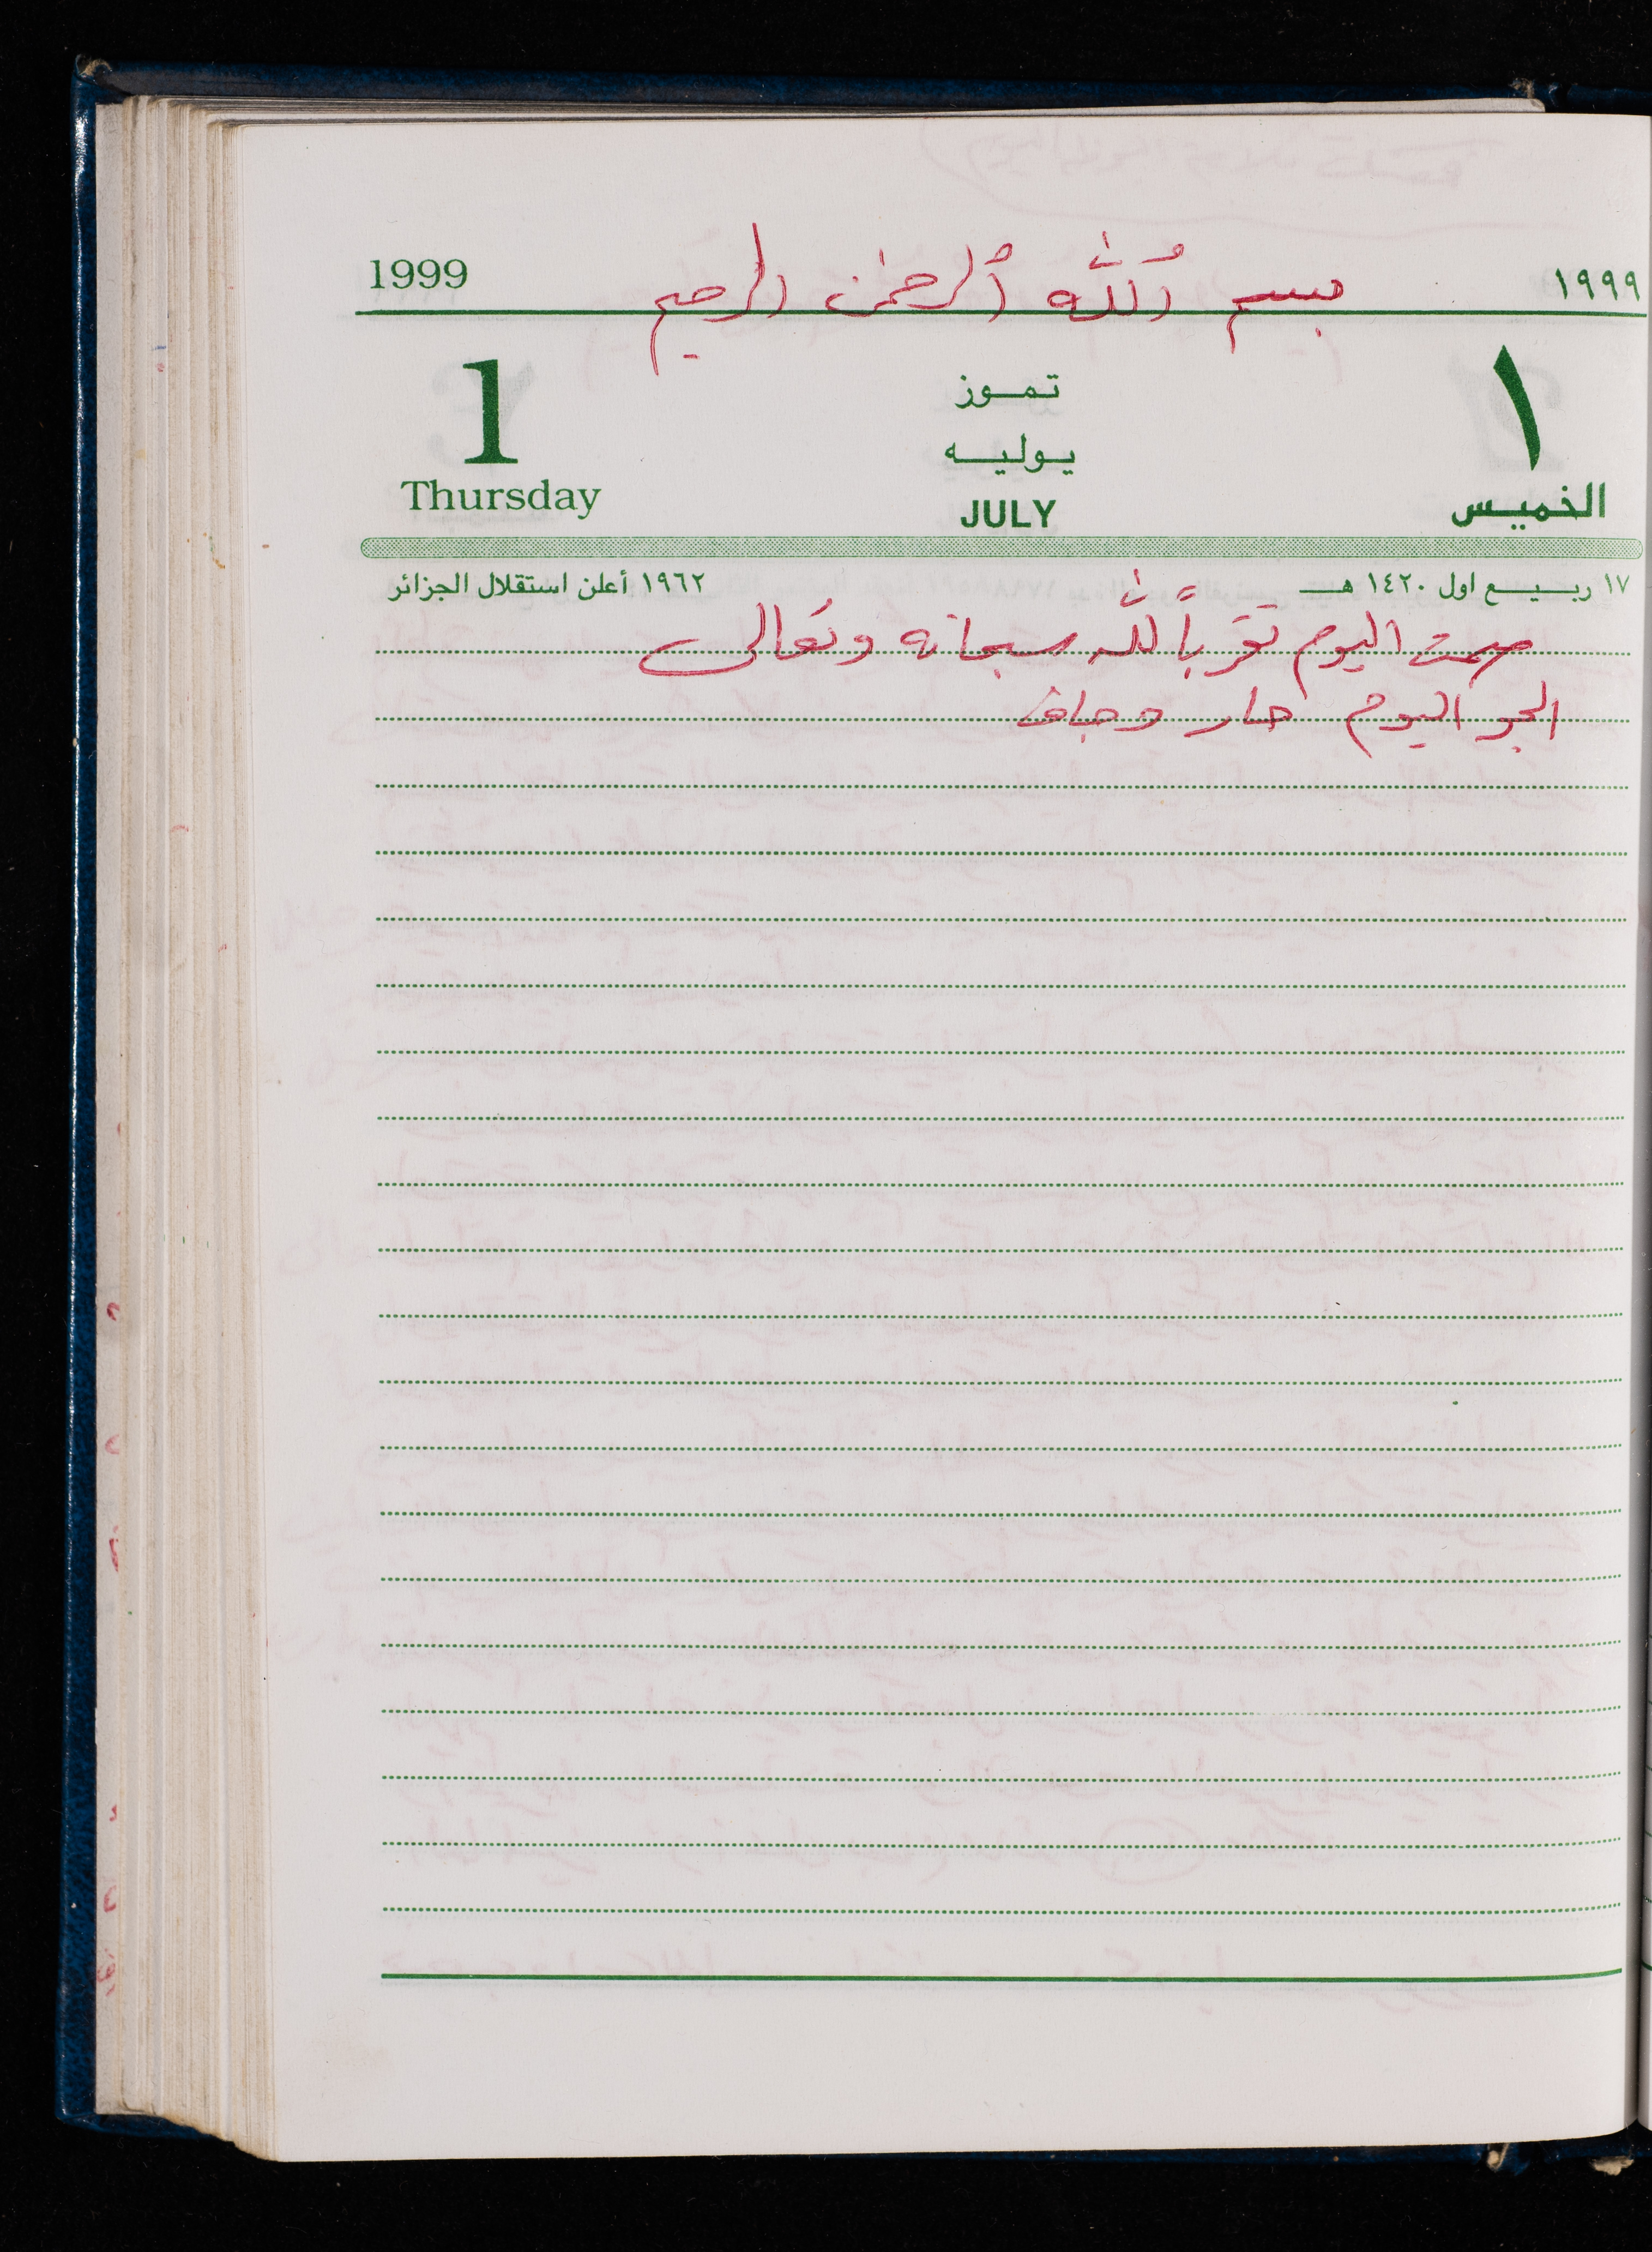 1999 بسم ٱللّه ٱلرحمن الرحيم ١٩٩٩
1 تموز ١
يوليه
Thursday JULY الخميس
١٧ ربيع اول ١٤٢٠ هـ ١٩٦٢ أعلن استقلال الجزائر
صمت اليوم تقرباً للّه سبحانه وتعالى
الجو اليوم حار وجاف